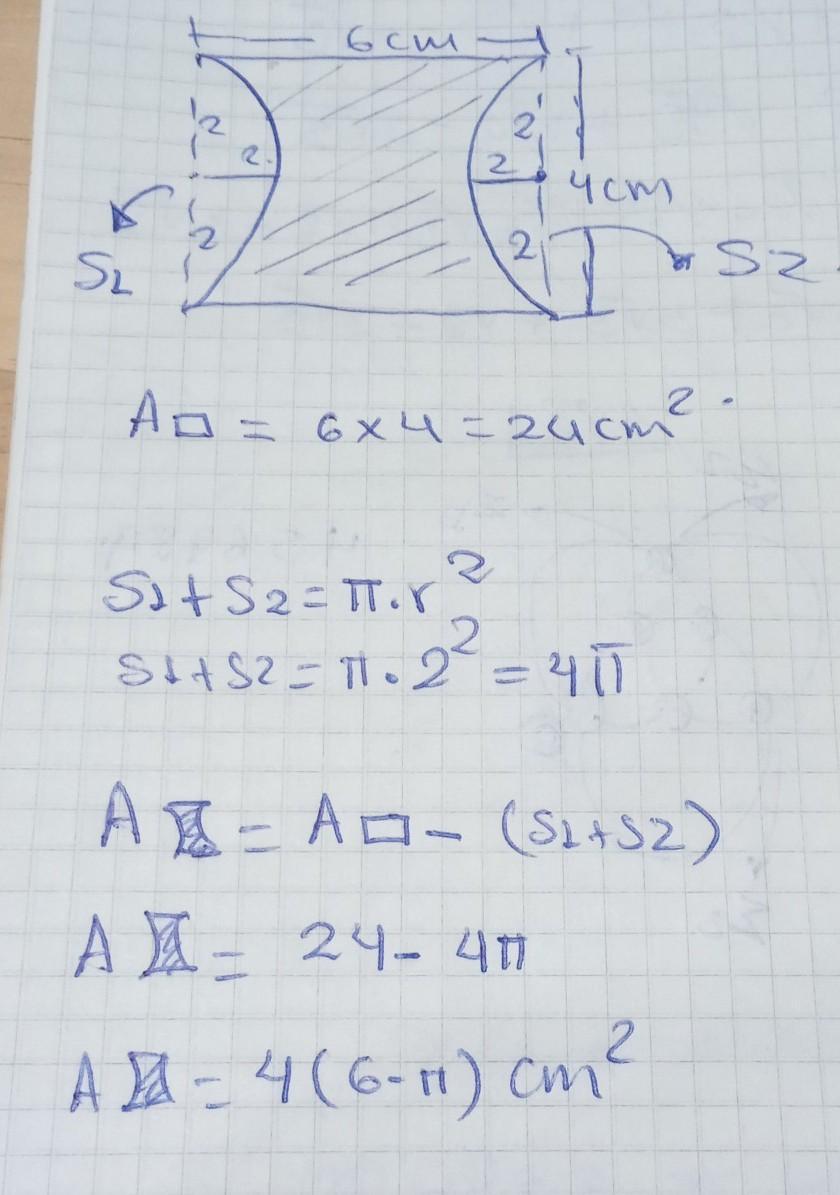 6cm
2 2
2. 2 4cm
2 2
S1 S2
A▭ = 6×4=24cm².
S1+S2=π.r²
S1+S2=π.2²=4π
A = A▭-(S1+S2)
A = 24-4π
A = 4(6-π) cm²